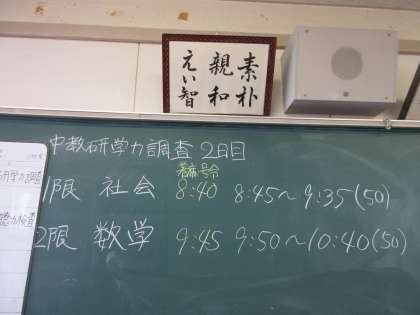 素朴
親和
えい智
中教研学力調査 2日目
着席号令
1限 社会 8:40 8:45～9:35(50)
2限 数学 9:45 9:50～10:40(50)
研学力調査